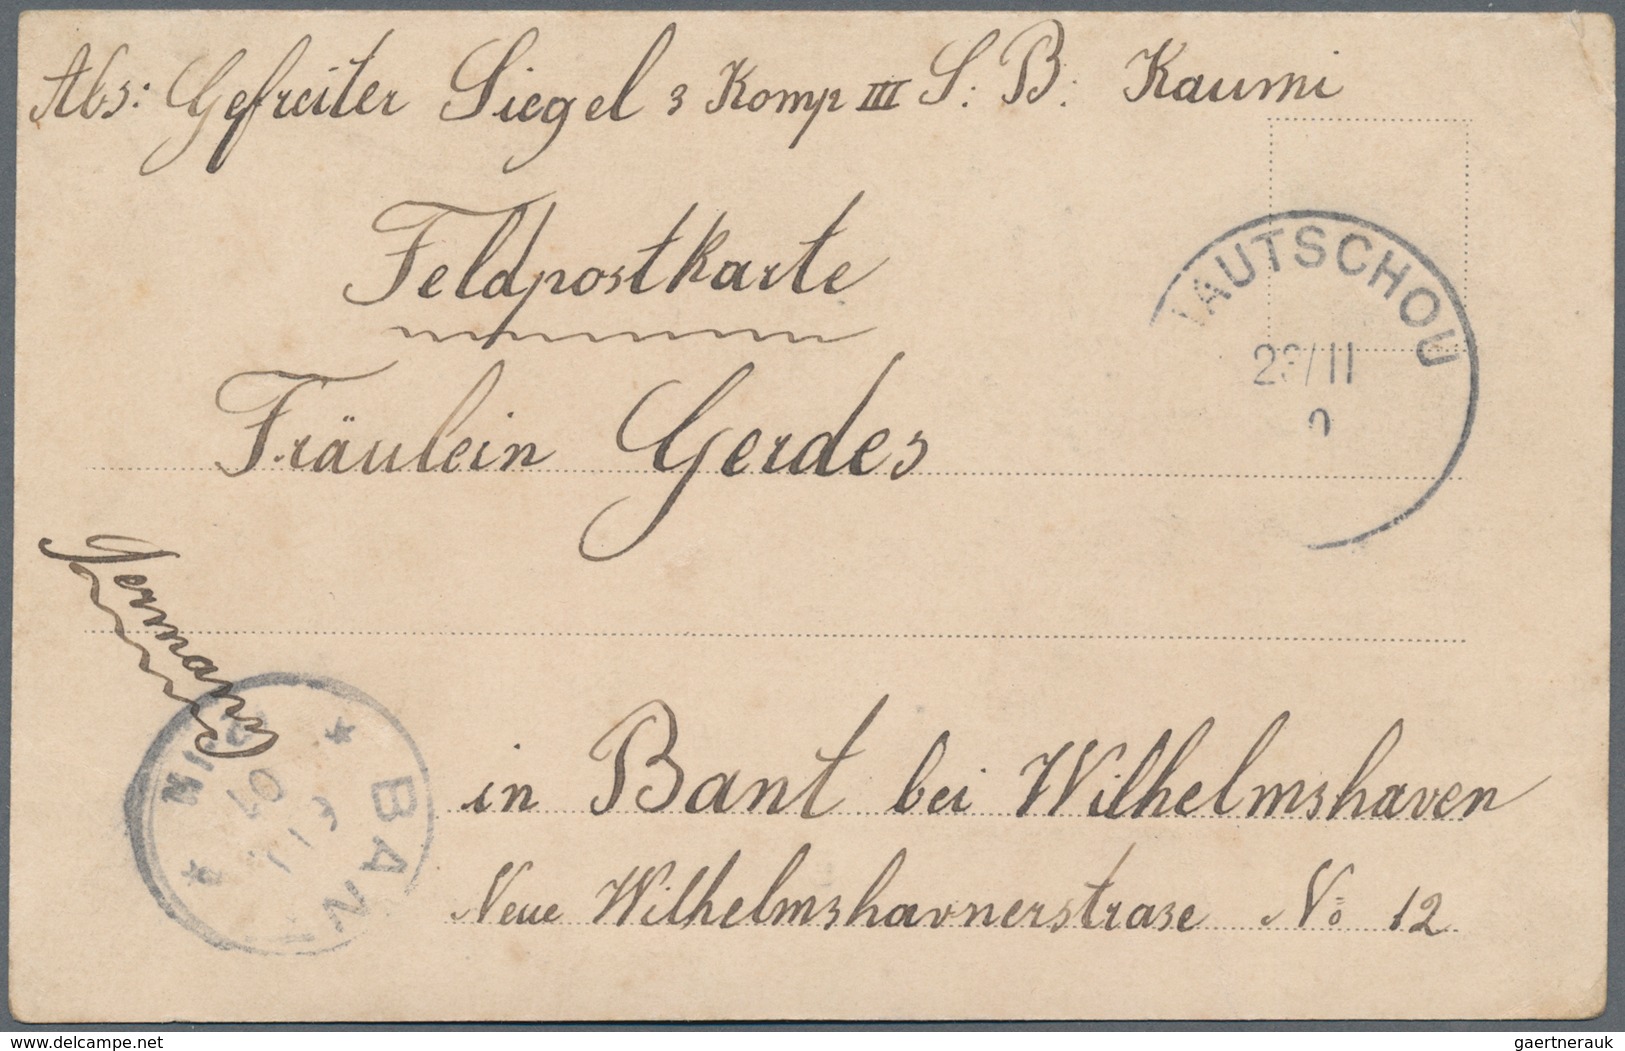 Abs: Gefreiter Siegel 3 Komp III S. B. Kaumi
Feldpostkarte
IAUTSCHOU
23/11
Fräulein Gerdes
Germany
BANT
in Bant bei Wilhelmshaven
Neue Wilhelmshavnerstrase No 12
www.delcampe.net
gaertnerauk